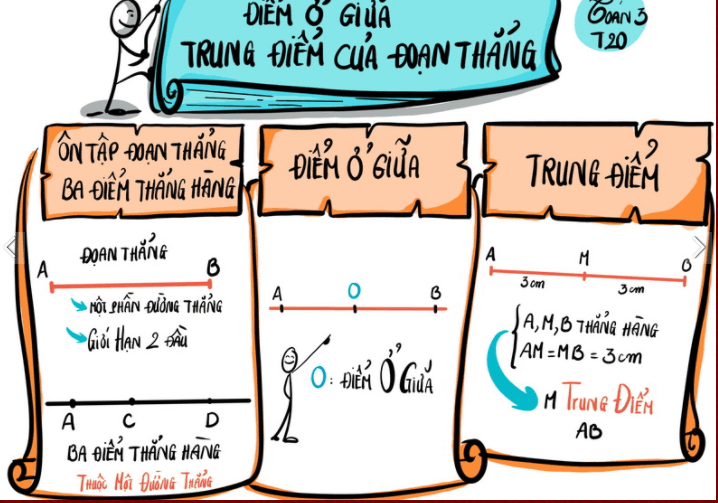 ĐIỂM Ở GIỮA
TRUNG ĐIỂM CỦA ĐOẠN THẲNG
TOÁN 3
T20
ÔN TẬP ĐOẠN THẲNG
BA ĐIỂM THẲNG HÀNG
ĐOẠN THẲNG
A B
MỘT PHẦN ĐƯỜNG THẲNG
GIỚI HẠN 2 ĐẦU
A C D
BA ĐIỂM THẲNG HÀNG
THUỘC MỘT ĐƯỜNG THẲNG
ĐIỂM Ở GIỮA
A O B
O: ĐIỂM Ở GIỮA
TRUNG ĐIỂM
A M B
3 cm 3 cm
A, M, B THẲNG HÀNG
AM = MB = 3 cm
M TRUNG ĐIỂM
AB